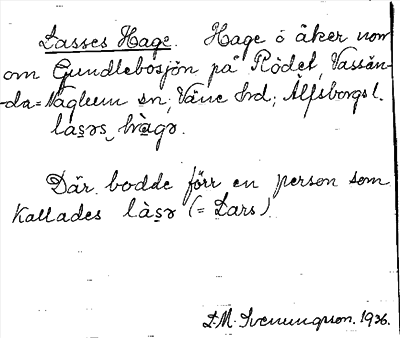 Lasses Hage. Hage o åker norr
om Gundlebosjön på Rödet, Vassän-
-da=Naglum sn, Väne hrd, Älfsborgs l.
la̱sәs hàgә.
Där bodde förr en person som
kallades làsә (= Lars).
D. M. Svenungsson. 1936.